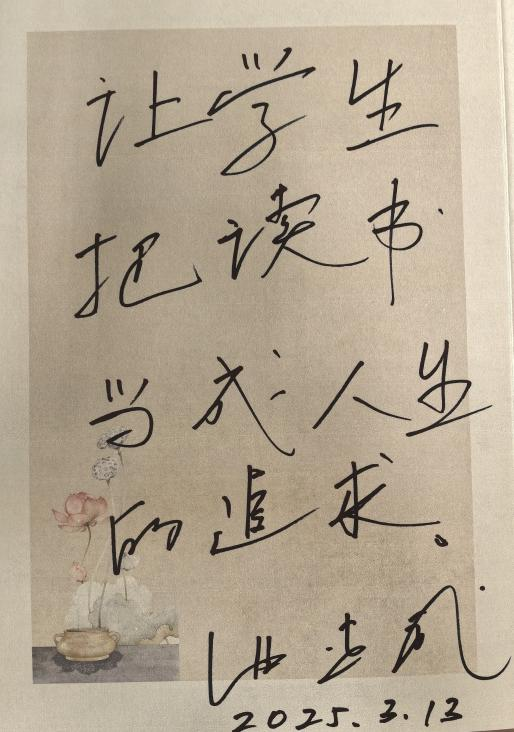 让学生
把读书
当成人生
的追求。
2025.3.13